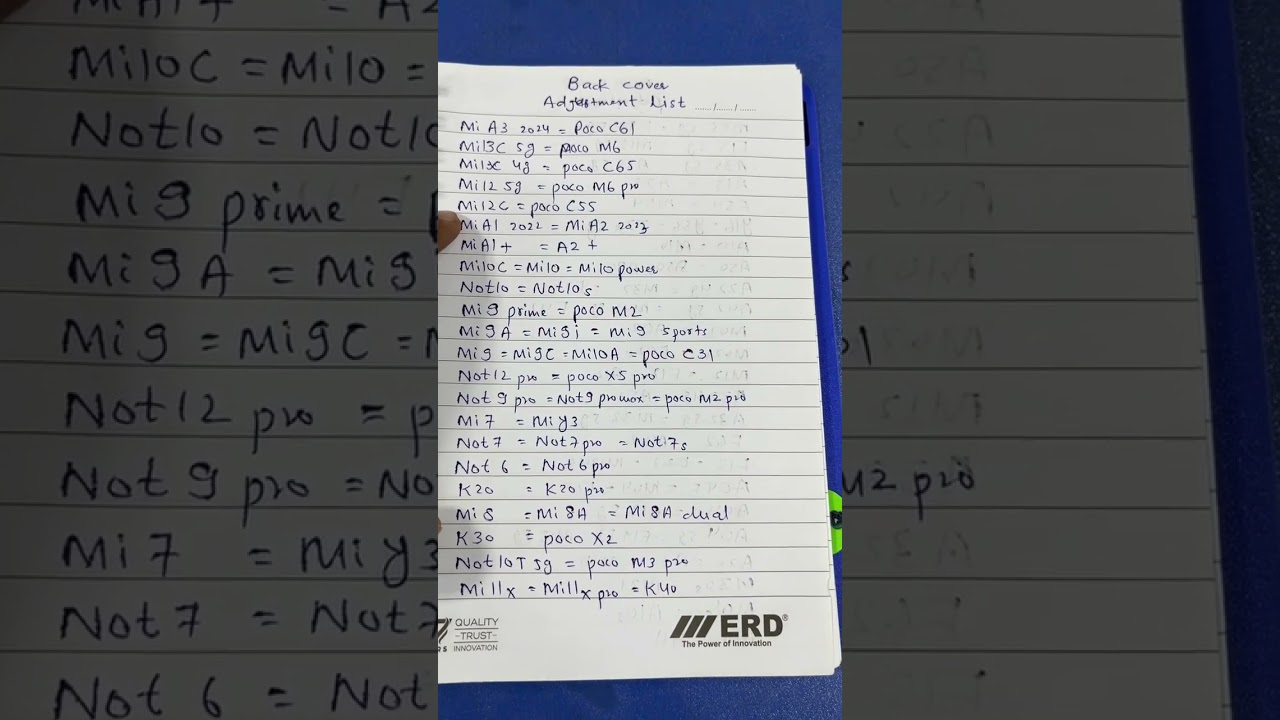 Back cover
Adjustment List ....../....../......
Mi A3 2024 = Poco C61
Mi13C 5g = poco M6
Mi13C 4g = poco C65
Mi12 5g = poco M6 pro
Mi12C = poco C55
MiA1 2022 = MiA2 2023
MiA1+ = A2+
Mi10C = Mi10 = Mi10 power
Not10 = Not10s
Mi9 prime = poco M2
Mi9A = Mi9i = Mi9 sports
Mi9 = Mi9C = Mi10A = poco C31
Not12 pro = poco X5 pro
Not 9 pro = Not9 promax = poco M2 pro
Mi7 = Miy3
Not7 = Not7pro = Not7s
Not 6 = Not 6 pro
K20 = K20 pro
Mi8 = Mi8A = Mi8A dual
K30 = poco X2
Not10T 5g = poco M3 pro
Mi11x = Mi11x pro = K40
QUALITY
-TRUST-
INNOVATION
ERD®
The Power of Innovation